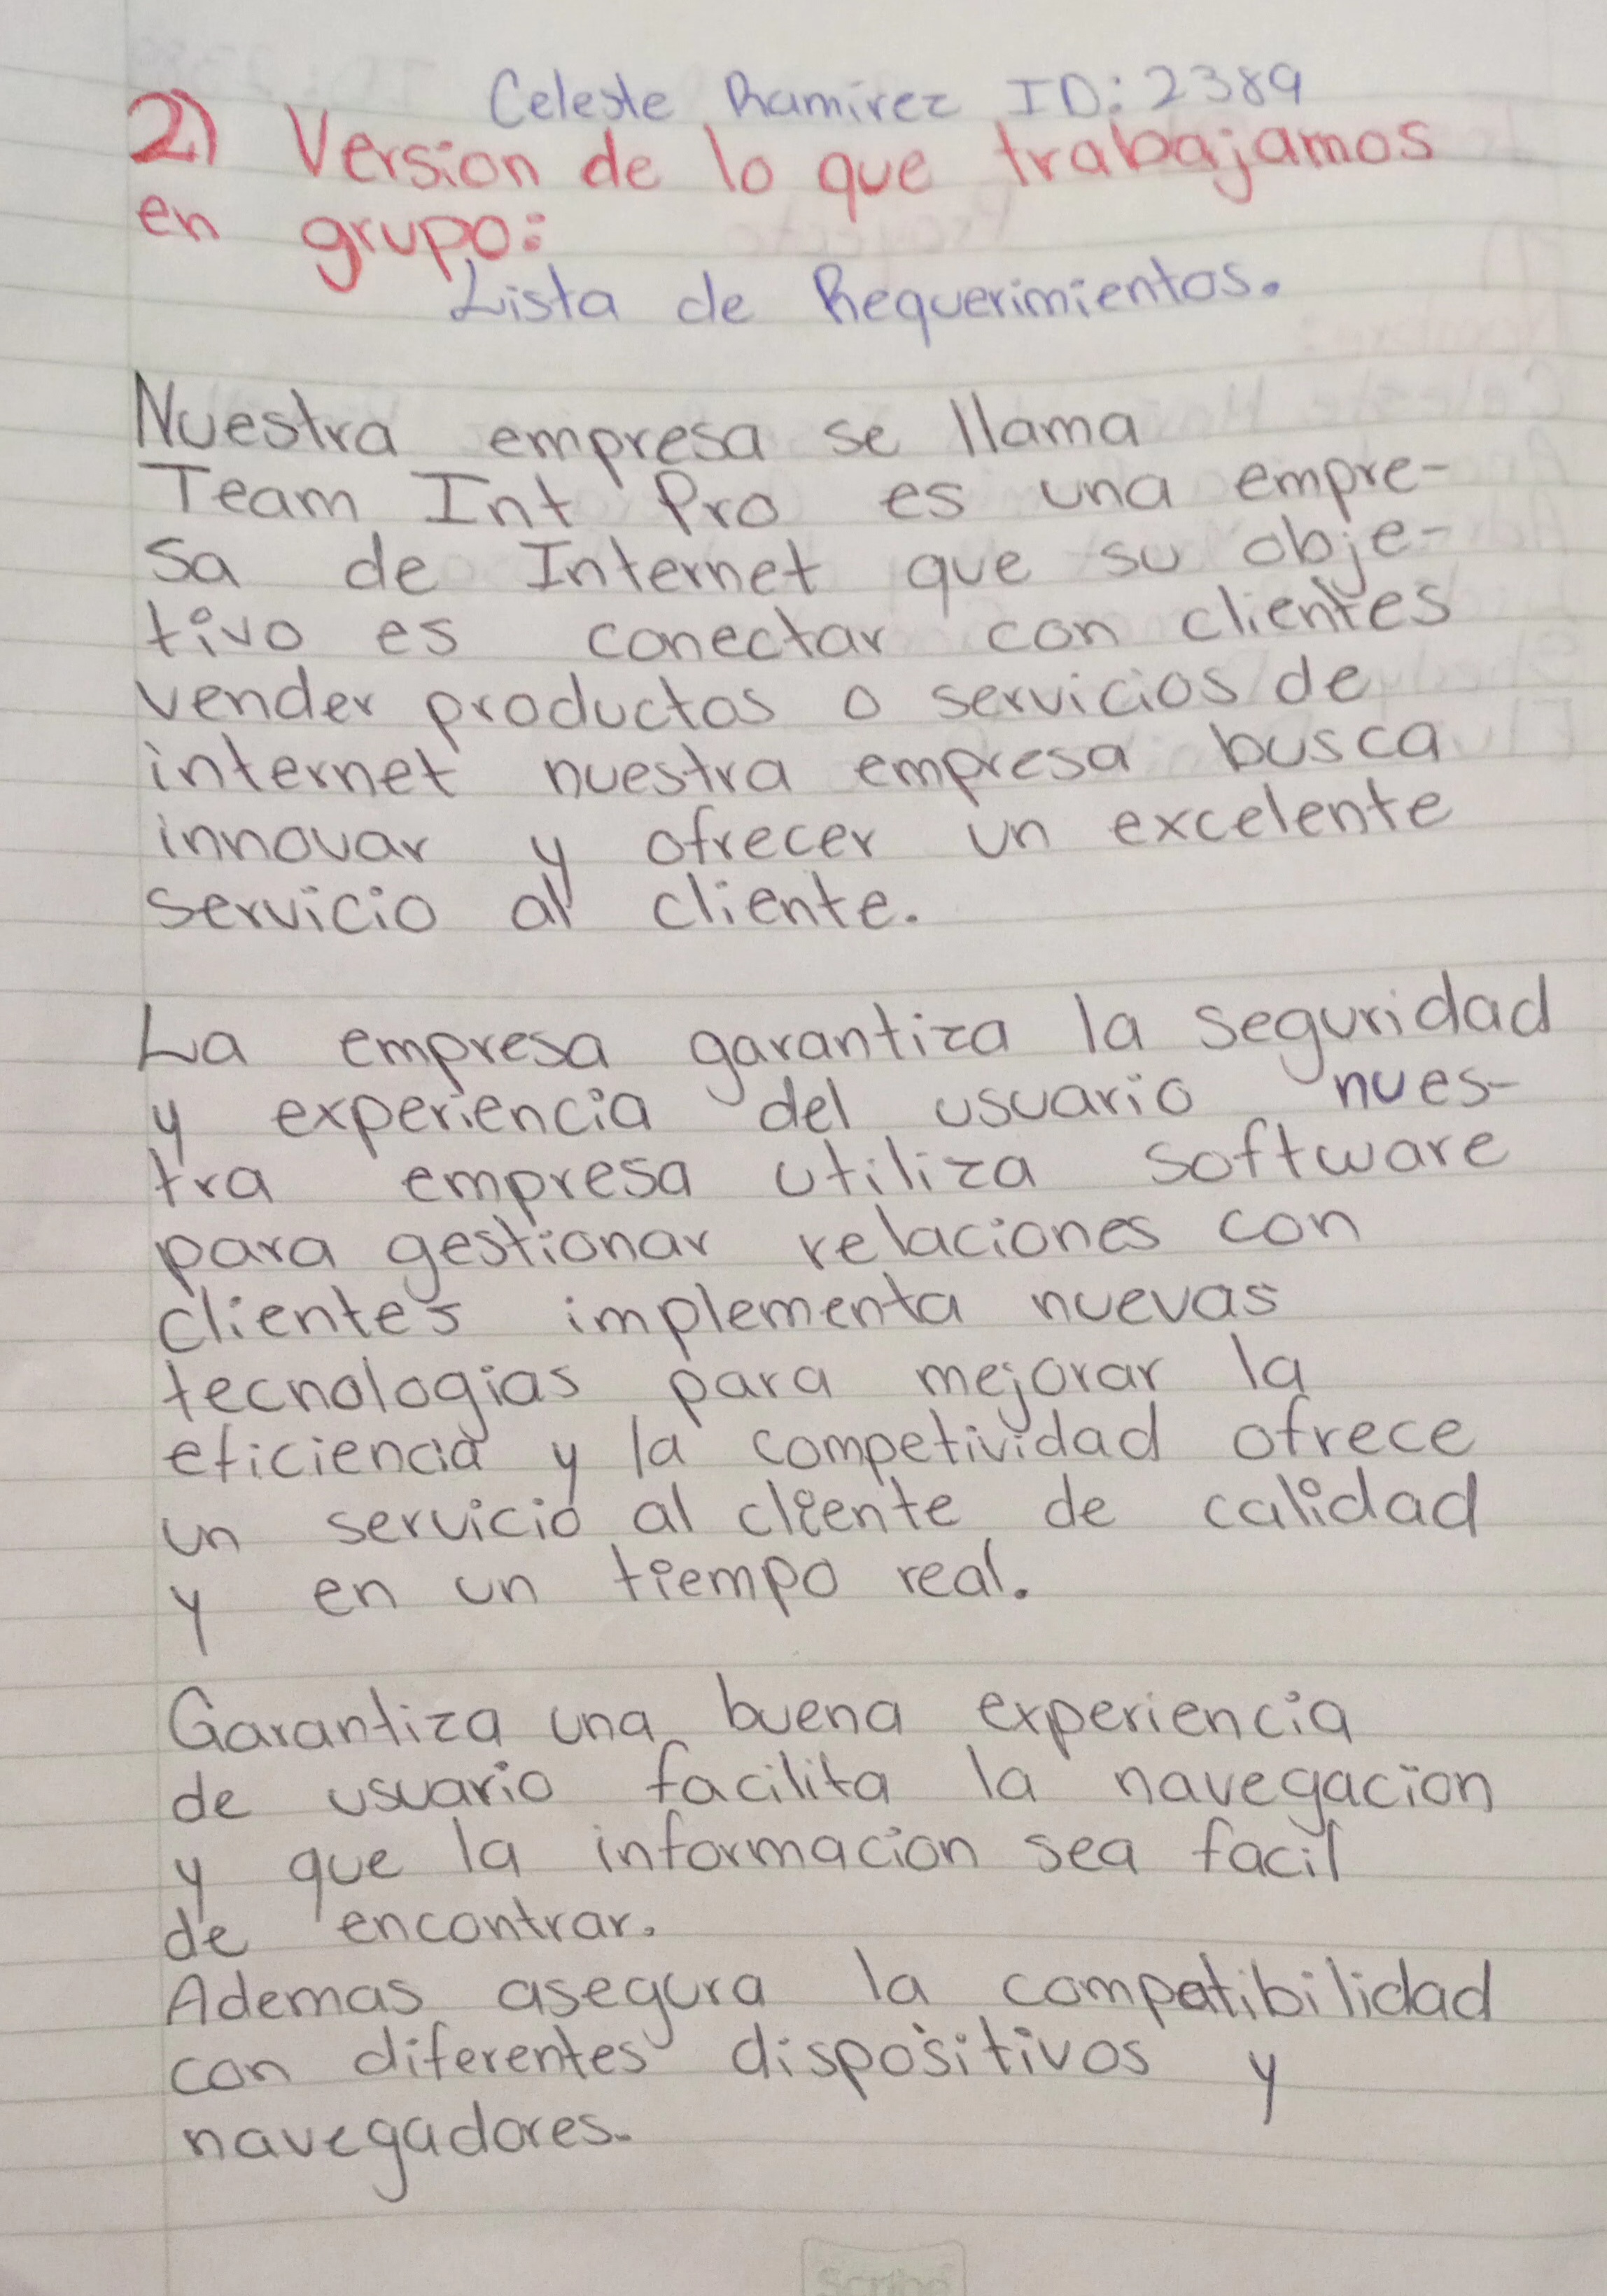 Celeste Ramirez ID: 2389
2) Version de lo que trabajamos
en grupo:
Lista de Requerimientos.
Nuestra empresa se llama
Team Int Pro es una empre-
sa de Internet que su obje-
tivo es conectar con clientes
vender productos o servicios de
internet nuestra empresa busca
innovar y ofrecer un excelente
servicio al cliente.
La empresa garantiza la seguridad
y experiencia del usuario nues-
tra empresa utiliza software
para gestionar relaciones con
clientes implementa nuevas
tecnologias para mejorar la
eficiencia y la competividad ofrece
un servicio al cliente de calidad
y en un tiempo real.
Garantiza una buena experiencia
de usuario facilita la navegacion
y que la informacion sea facil
de encontrar.
Ademas asegura la compatibilidad
con diferentes dispositivos y
navegadores.
Scribe